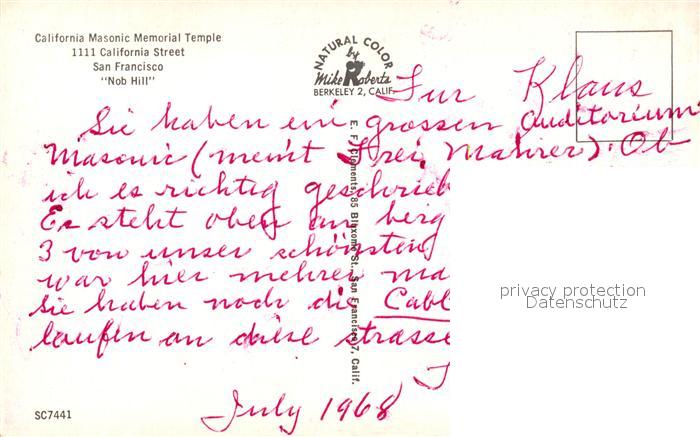 California Masonic Memorial Temple
1111 California Street
San Francisco
"Nob Hill"
NATURAL COLOR
by
Mike Roberts
BERKELEY 2, CALIF.
Fur Klaus
Sie haben ein grossen Auditorium
Masonic (meint Frei Mahrer). Ob
ich es richtig geschrieb
Es steht oben am berg
3 von unser schönsten
war hier mehrer ma
Sie haben noch die Cabl
laufen an diese strasse
July 1968
E. F. Clements, 85 Bluxome St., San Francisco 7, Calif.
SC7441
privacy protection
Datenschutz